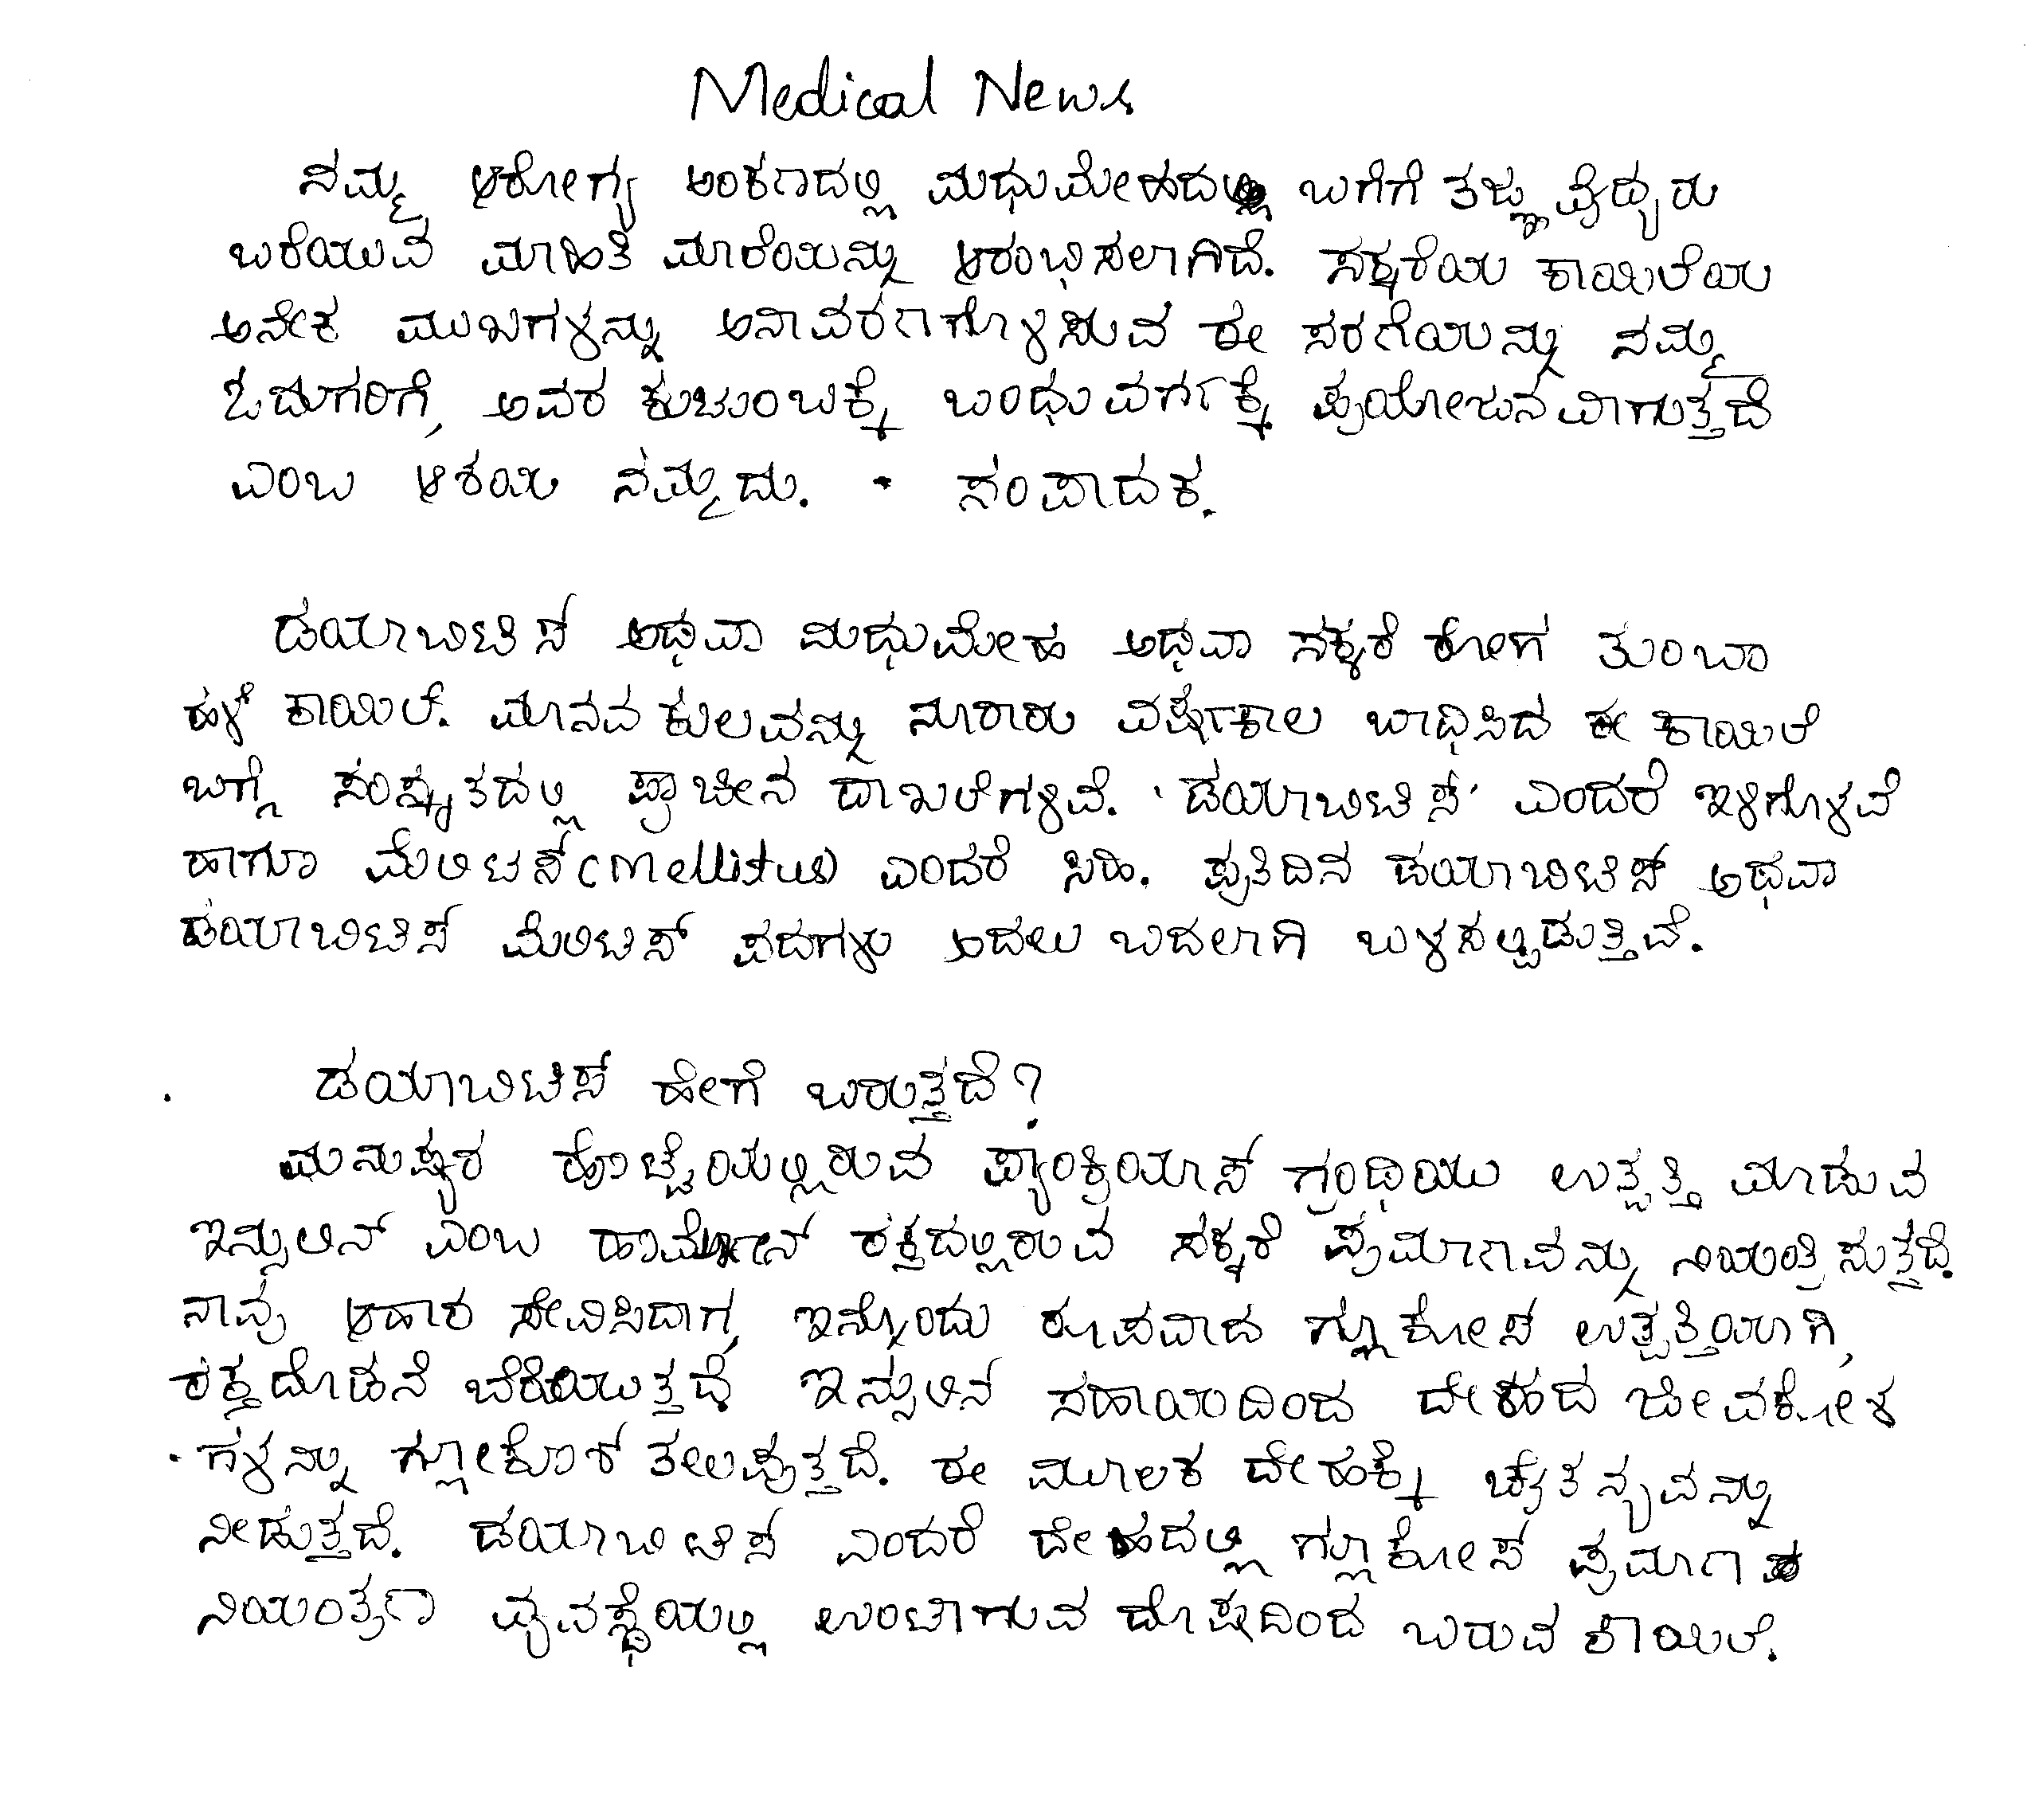 Medical News
ನಮ್ಮ ಆರೋಗ್ಯ ಅಂಕಣದಲ್ಲಿ ಮಧುಮೇಹದಲ್ಲಿ ಬಗೆಗೆ ತಜ್ಞ ವೈದ್ಯರು
ಬರೆಯುವ ಮಾಹಿತಿ ಮಾಲೆಯನ್ನು ಆರಂಭಿಸಲಾಗಿದೆ. ಸಕ್ಕರೆಯ ಕಾಯಿಲೆಯ
ಅನೇಕ ಮುಖಗಳನ್ನು ಅನಾವರಣಗೊಳಿಸುವ ಈ ಸರಣಿಯನ್ನು ನಮ್ಮ
ಓದುಗರಿಗೆ, ಅವರ ಕುಟುಂಬಕ್ಕೆ ಬಂಧುವರ್ಗಕ್ಕೆ ಪ್ರಯೋಜನವಾಗುತ್ತದೆ
ಎಂಬ ಆಶಯ ನಮ್ಮದು. - ಸಂಪಾದಕ.
ಡಯಾಬಿಟಿಸ್ ಅಥವಾ ಮಧುಮೇಹ ಅಥವಾ ಸಕ್ಕರೆ ರೋಗ ತುಂಬಾ
ಹಳೆ ಕಾಯಿಲೆ. ಮಾನವ ಕುಲವನ್ನು ನೂರಾರು ವರ್ಷಕಾಲ ಬಾಧಿಸಿದ ಈ ಕಾಯಿಲೆ
ಬಗ್ಗೆ ಸಂಸ್ಕೃತದಲ್ಲಿ ಪ್ರಾಚೀನ ದಾಖಲೆಗಳಿವೆ. 'ಡಯಾಬಿಟಿಸ್' ಎಂದರೆ ಇಳಿಗೊಳವೆ
ಹಾಗೂ ಮೆಲಿಟಸ್ (mellitus) ಎಂದರೆ ಸಿಹಿ. ಪ್ರತಿದಿನ ಡಯಾಬಿಟಿಸ್ ಅಥವಾ
ಡಯಾಬಿಟಿಸ್ ಮೆಲಿಟಿಸ್ ಪದಗಳು ಅದಲು ಬದಲಾಗಿ ಬಳಸಲ್ಪಡುತ್ತಿವೆ.
ಡಯಾಬಿಟಿಸ್ ಹೇಗೆ ಬರುತ್ತದೆ?
ಮನುಷ್ಯರ ಹೊಟ್ಟೆಯಲ್ಲಿರುವ ಪ್ಯಾಂಕ್ರಿಯಾಸ್ ಗ್ರಂಥಿಯು ಉತ್ಪತ್ತಿ ಮಾಡುವ
ಇನ್ಸುಲಿನ್ ಎಂಬ ಹಾರ್ಮೋನ್ ರಕ್ತದಲ್ಲಿರುವ ಸಕ್ಕರೆ ಪ್ರಮಾಣವನ್ನು ನಿಯಂತ್ರಿಸುತ್ತದೆ.
ನಾವು ಆಹಾರ ಸೇವಿಸಿದಾಗ, ಇನ್ನೊಂದು ರೂಪವಾದ ಗ್ಲೂಕೋಸ್ ಉತ್ಪತ್ತಿಯಾಗಿ,
ರಕ್ತದೊಡನೆ ಬೆರೆಯುತ್ತದೆ. ಇನ್ಸುಲಿನ್ ಸಹಾಯದಿಂದ ದೇಹದ ಜೀವಕೋಶ
ಗಳನ್ನು ಗ್ಲೂಕೋಸ್ ತಲುಪುತ್ತದೆ. ಈ ಮೂಲಕ ದೇಹಕ್ಕೆ ಚೈತನ್ಯವನ್ನು
ನೀಡುತ್ತದೆ. ಡಯಾಬಿಟಿಸ್ ಎಂದರೆ ದೇಹದಲ್ಲಿ ಗ್ಲೂಕೋಸ್ ಪ್ರಮಾಣ
ನಿಯಂತ್ರಣ ವ್ಯವಸ್ಥೆಯಲ್ಲಿ ಉಂಟಾಗುವ ದೋಷದಿಂದ ಬರುವ ಕಾಯಿಲೆ.